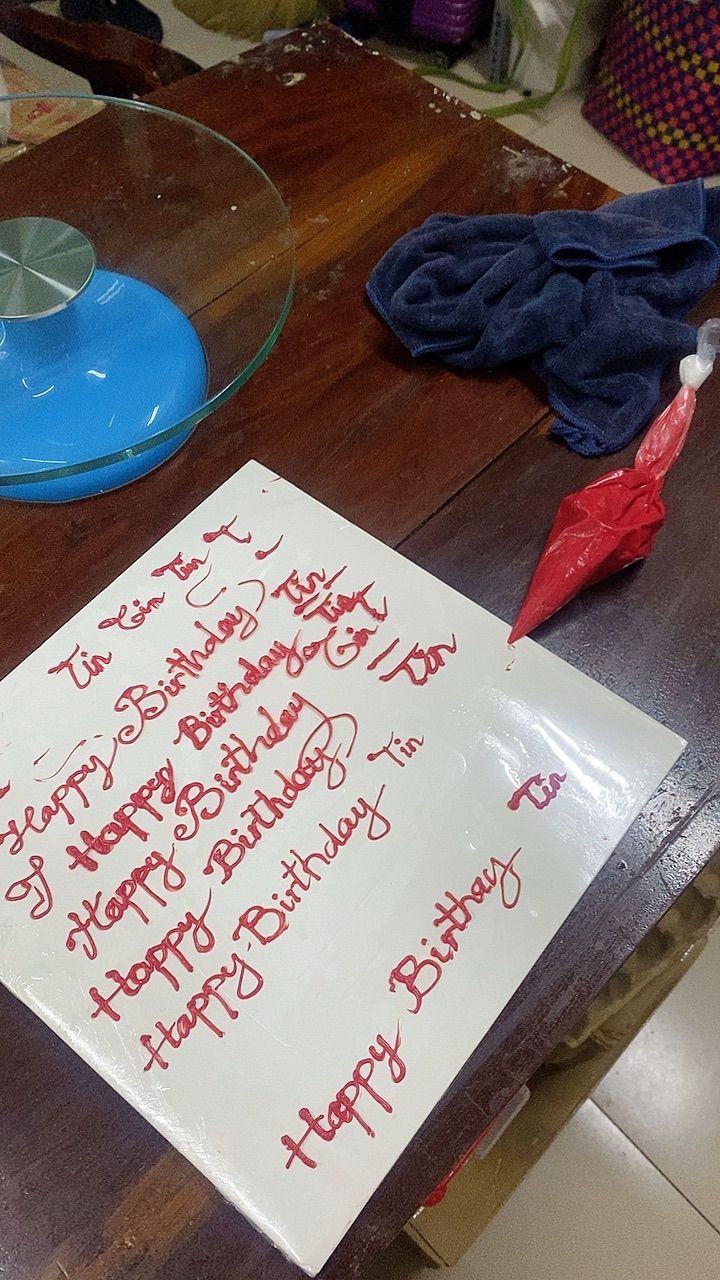 Tin Tin Tin T
Happy Birthday Tin
Happy Birthday Tin
Happy Birthday Tin
Happy Birthday Tin
Happy Birthday Tin
Happy Birthay Tin